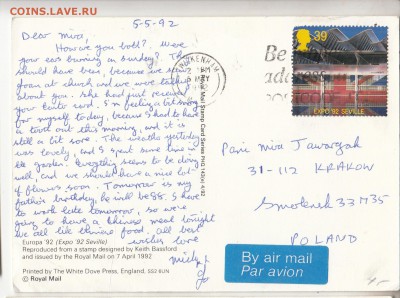 COINS.LAVE.RU
5-5-92
Dear Mira,
How are you both? Were
your ears burning on Sunday? They
should have been, because we saw
Joan at church and we were talking
about you. She had just received
your Easter card. I'm feeling a bit sorry
for myself today, because I had to have
a tooth out this morning, and it is
still a bit sore. The weather yesterday
was lovely and I spent some time in
the garden. Everything seems to be doing
well, and we should have a nice lot
of flowers soon. Tomorrow is my
father's birthday, he will be 88. I have
to work late tomorrow, so we're
going to have a Chinese meal tonight
we all like Chinese food. All best
wishes love
Europa '92 (Expo '92 Seville)
Reproduced from a stamp designed by Keith Bassford
and issued by the Royal Mail on 7 April 1992
Printed by The White Dove Press, England.
© Royal Mail
Royal Mail Stamp Card Series
MAY
Be
address
39
EXPO '92 SEVILLE
Pani Mira
31-112 KRAKOW
Smolensk
POLAND
By air mail
Par avion